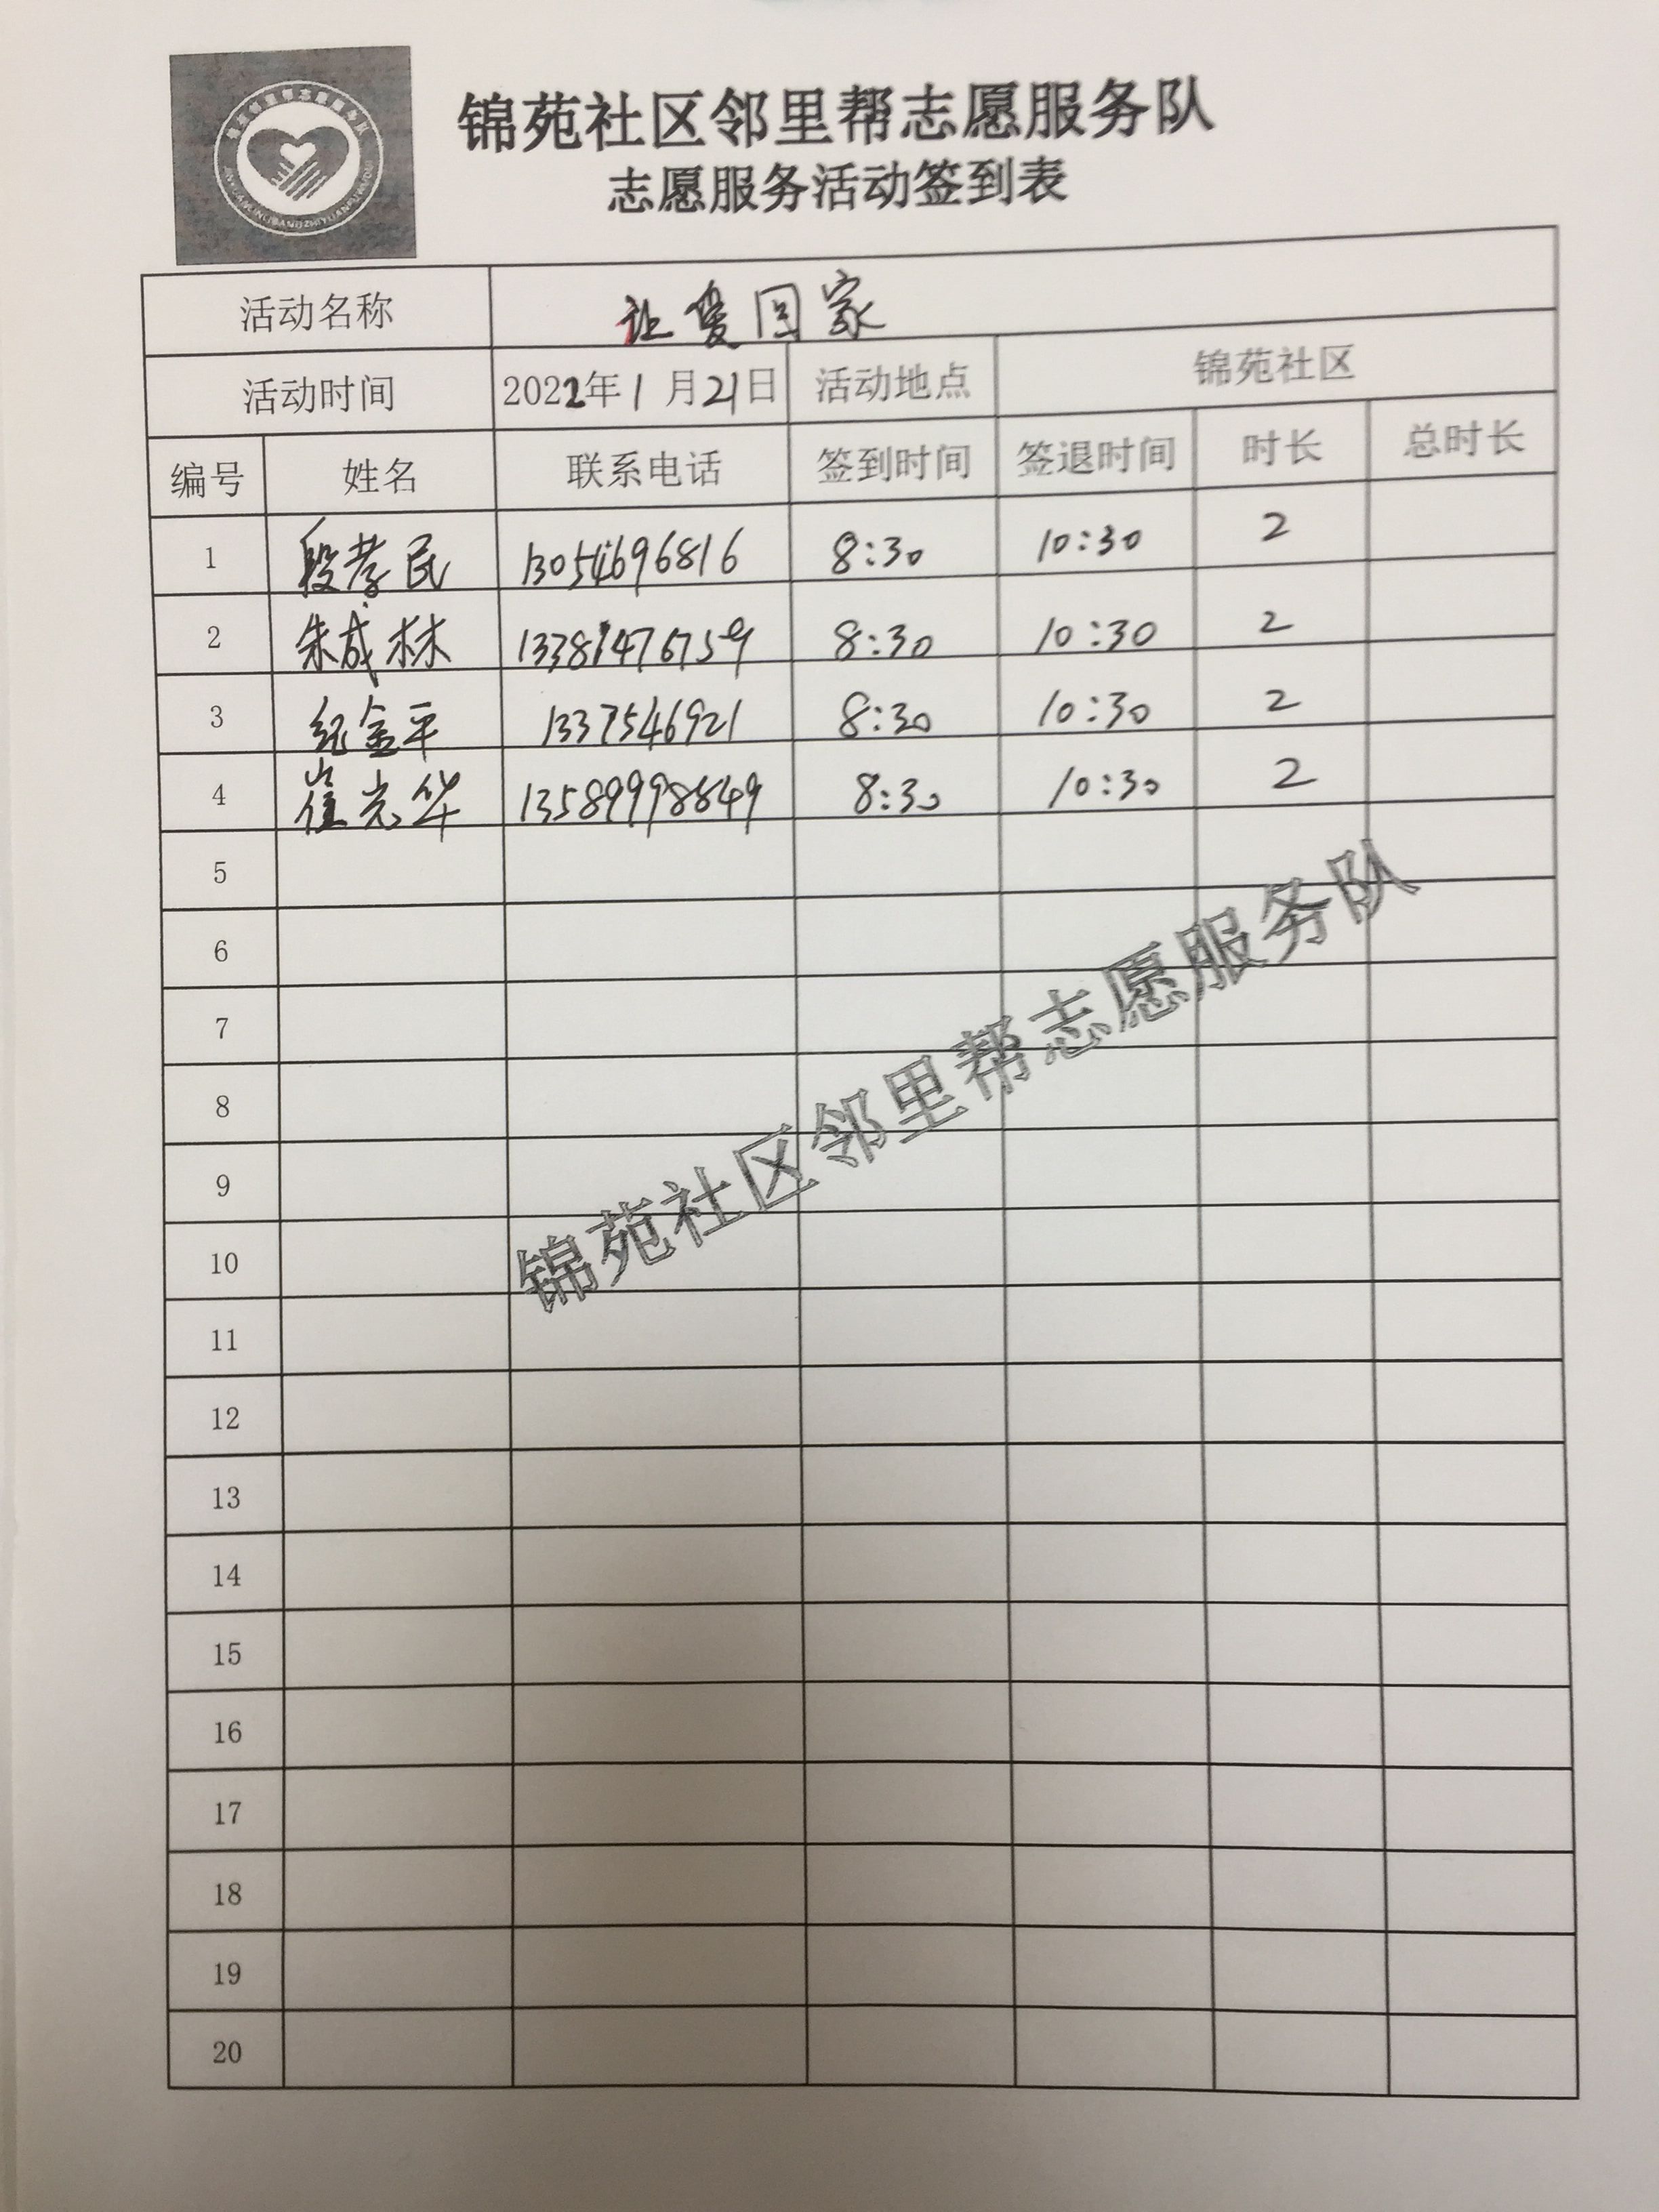 锦苑社区邻里帮志愿服务队
志愿服务活动签到表
活动名称 让爱回家
活动时间 2022年1月21日 活动地点 锦苑社区
编号 姓名 联系电话 签到时间 签退时间 时长 总时长
1 段孝民 13054696816 8:30 10:30 2
2 朱成林 13381476759 8:30 10:30 2
3 纪金平 1337546921 8:30 10:30 2
4 崔光华 13589998849 8:30 10:30 2
5
6
7
8
9
10
11
12
13
14
15
16
17
18
19
20
锦苑社区邻里帮志愿服务队